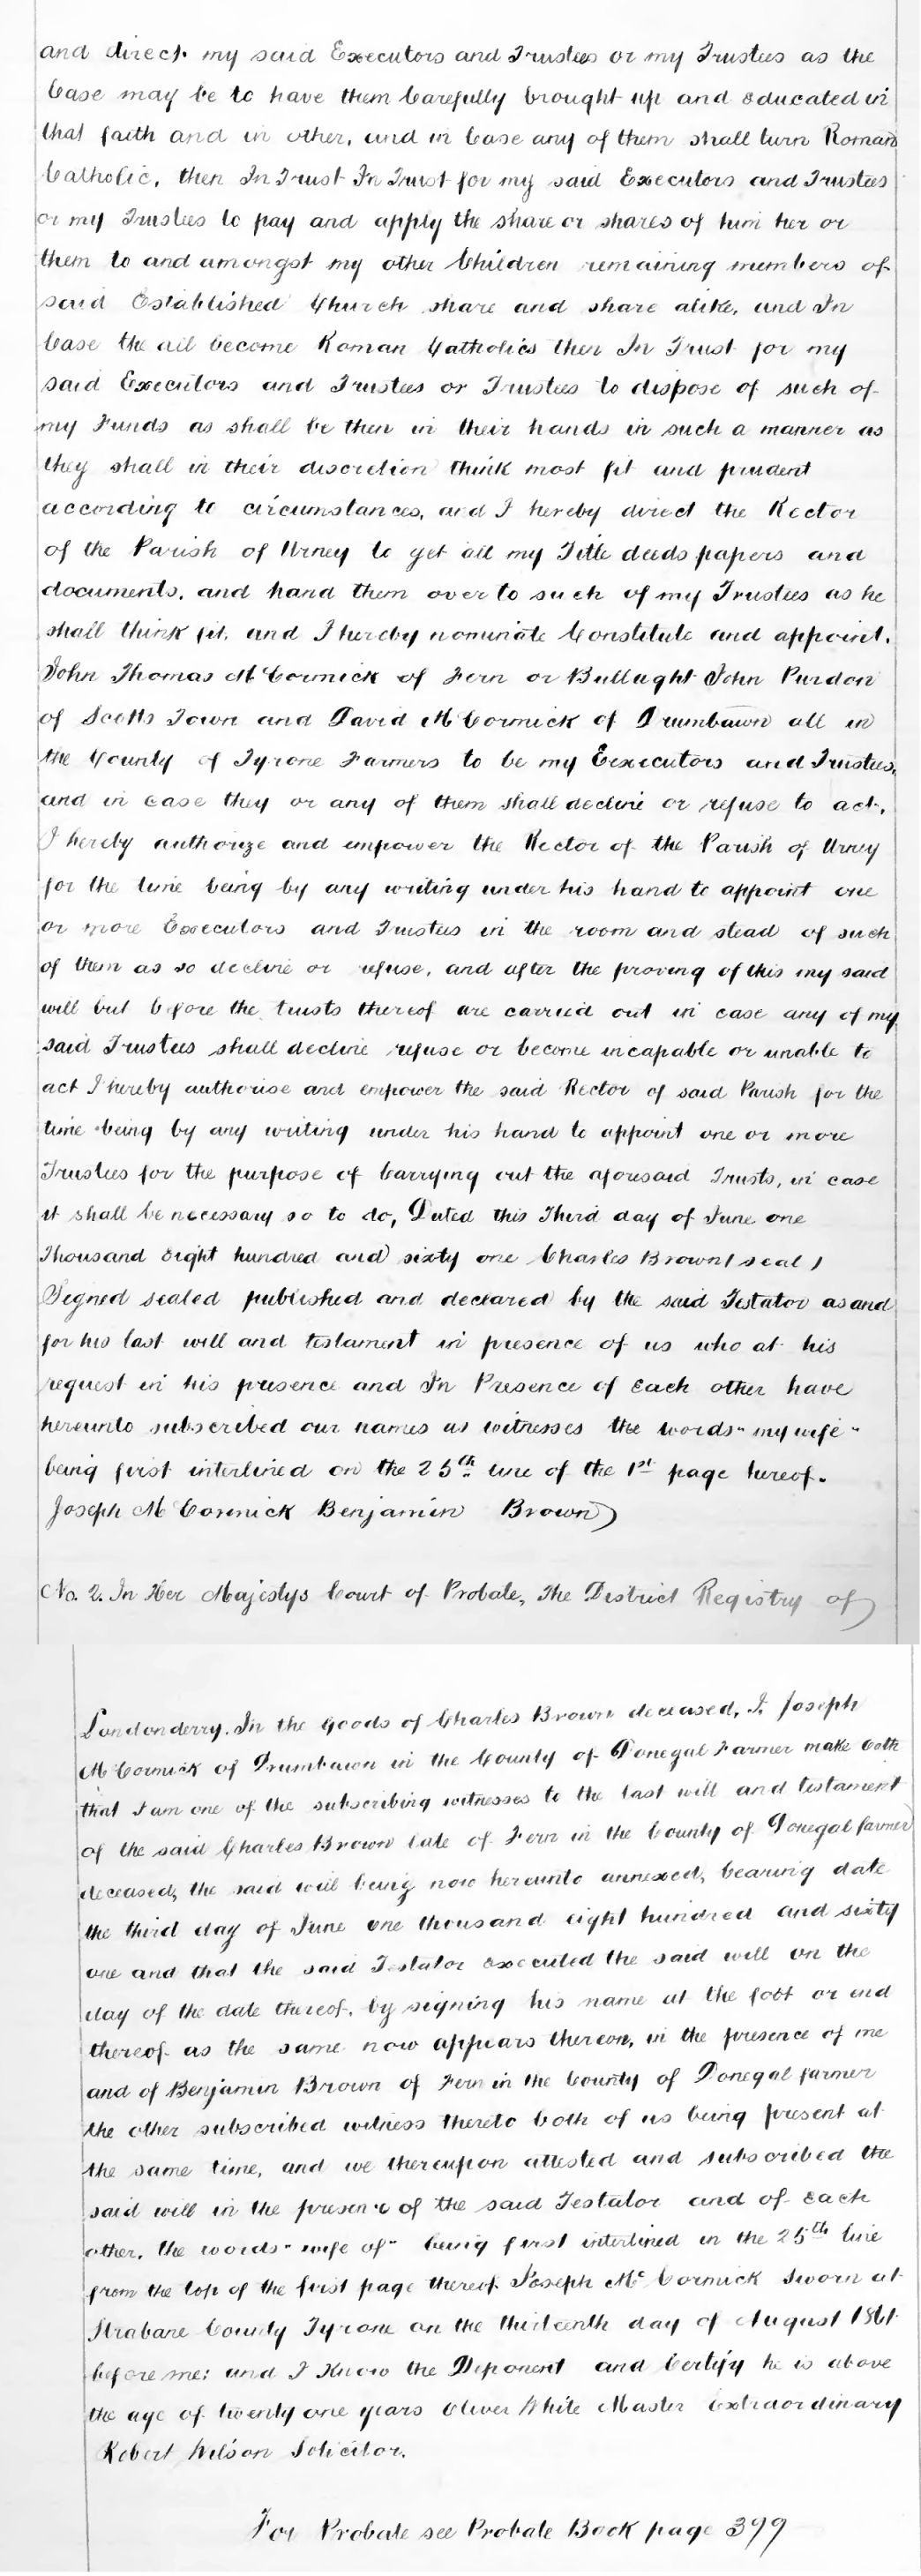 and direct my said Executors and Trustees or my Trustees as the
Case may be to have them Carefully brought up and educated in
that faith and in other, and in Case any of them shall turn Roman
Catholic, then In Trust In Trust for my said Executors and Trustees
or my Trustees to pay and apply the share or shares of him her or
them to and amongst my other Children remaining members of
said Established Church share and share alike, and In
Case the all become Roman Catholics then In Trust for my
said Executors and Trustees or Trustees to dispose of such of
my Funds as shall be then in their hands in such a manner as
they shall in their discretion think most fit and prudent
according to circumstances, and I hereby direct the Rector
of the Parish of Urney to get all my Title deeds papers and
documents, and hand them over to such of my Trustees as he
shall think fit, and I hereby nominate Constitute and appoint.
John Thomas McCormick of Fern or Bullaght John Purdon
of Scotts Town and David McCormick of Drumbawn all in
the County of Tyrone Farmers to be my Eexecutors and Trustees,
and in case they or any of them shall decline or refuse to act,
I hereby authorize and empower the Rector of the Parish of Urney
for the time being by any writing under his hand to appoint one
or more Executors and Trustees in the room and stead of such
of them as so decline or refuse, and after the proving of this my said
will but before the trusts thereof are carried out in case any of my
said Trustees shall decline refuse or become incapable or unable to
act I hereby authorise and empower the said Rector of said Parish for the
time being by any writing under his hand to appoint one or more
Trustees for the purpose of Carrying out the aforesaid Trusts, in case
it shall be necessary so to do, Dated this Third day of June one
Thousand eight hundred and sixty one Charles Brown (seal)
Signed sealed published and declared by the said Testator as and
for his last will and testament in presence of us who at his
request in his presence and In Presence of Each other have
hereunto subscribed our names as witnesses the words "my wife"
being first interlined on the 25th line of the 1st page hereof.
Joseph McCormick Benjamin Brown)
No. 2. In Her Majestys Court of Probate, The District Registry of)
Londonderry. In the Goods of Charles Brown deceased, I, Joseph
McCormick of Drumbawn in the County of Donegal Farmer make Oath
that I am one of the subscribing witnesses to the last will and testament
of the said Charles Brown late of Fern in the County of Donegal farmer
deceased, the said will being now hereunto annexed, bearing date
the third day of June one thousand eight hundred and sixty
one and that the said Testator executed the said will on the
day of the date thereof, by signing his name at the foot or end
thereof as the same now appears thereon, in the presence of me
and of Benjamin Brown of Fern in the County of Donegal farmer
the other subscribed witness thereto both of us being present at
the same time, and we thereupon attested and subscribed the
said will in the presence of the said Testator and of Each
other, the words "wife of" being first interlined in the 25th line
from the top of the first page thereof Joseph McCormick Sworn at
Strabane County Tyrone on the thirteenth day of August 1861
before me: and I Know the Deponent and Certify he is above
the age of twenty one years Oliver White Master Extraordinary
Robert Wilson Solicitor.
For Probate see Probate Book page 399